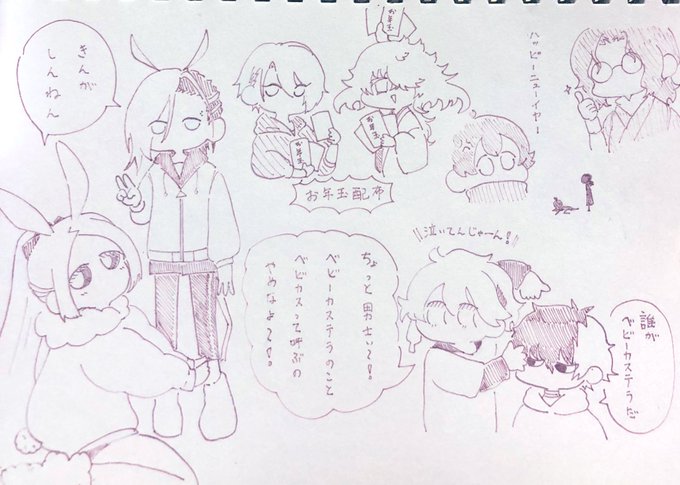 きんが
しんねん
お年玉
お年玉
お年玉
お年玉配布
ハッピーニューイヤー!
ちょっと男士ぃ〜!
ベビーカステラのこと
ベビカスって呼ぶの
やめなよ〜!
泣いてんじゃーん!
誰が
ベビーカステラだ